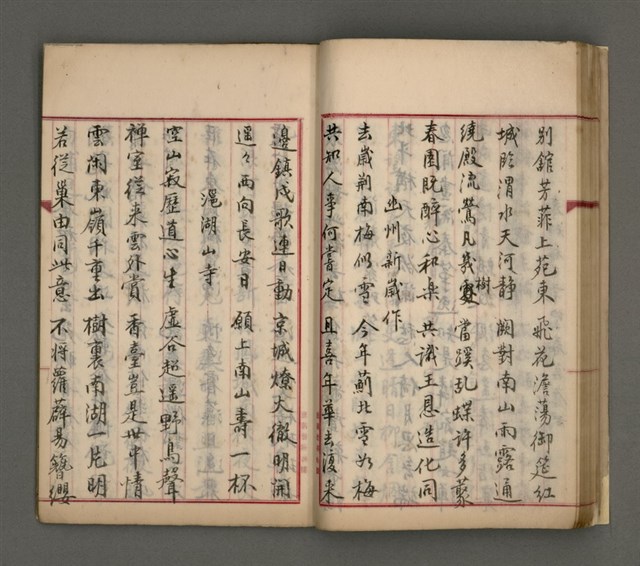 別館芳菲上苑東 飛花澹蕩御筵紅
城臨渭水天河靜 闕對南山雨露通
繞殿流鶯凡幾樹 當蹊乱蝶許多叢
春園既醉心和樂 共識王恩造化同
幽州新歲作
去歲荆南梅似雪 今年薊北雪如梅
共知人事何嘗定 且喜年華去復来
邊鎮戍歌連日動 京城燎火徹明開
遥々西向長安日 願上南山壽一杯
滬湖山寺
空山寂歷道心生 虚谷超遥野鳥聲
禅室從来雲外賞 香臺豈是世中情
雲闲東嶺千重出 樹裏南湖一片明
若從巢由同此意 不將蘿薜易簪纓